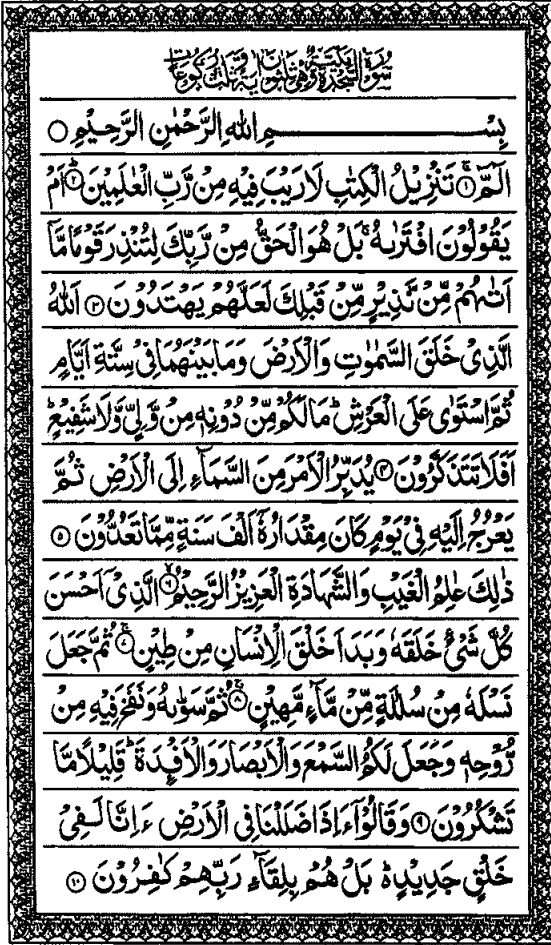 سُوْرَةُ السَّجْدَةِ مَكِّيَّةٌ وَّهِىَ ثَلٰثُوْنَ اٰيَةً وَّثَلٰثُ رُكُوْعَاتٍ
بِسْمِ اللّٰهِ الرَّحْمٰنِ الرَّحِيْمِ ○
الٓمّٓ ۚ﴿۱﴾ تَنْزِيْلُ الْكِتٰبِ لَا رَيْبَ فِيْهِ مِنْ رَّبِّ الْعٰلَمِيْنَ ؕ﴿۲﴾ اَمْ
يَقُوْلُوْنَ افْتَرٰىهُ ۚ بَلْ هُوَ الْحَقُّ مِنْ رَّبِّكَ لِتُنْذِرَ قَوْمًا مَّاۤ
اَتٰىهُمْ مِّنْ نَّذِيْرٍ مِّنْ قَبْلِكَ لَعَلَّهُمْ يَهْتَدُوْنَ ﴿۳﴾ اَللّٰهُ
الَّذِىْ خَلَقَ السَّمٰوٰتِ وَالْاَرْضَ وَمَا بَيْنَهُمَا فِىْ سِتَّةِ اَيَّامٍ
ثُمَّ اسْتَوٰى عَلَى الْعَرْشِ ؕ مَا لَكُمْ مِّنْ دُوْنِهٖ مِنْ وَّلِىٍّ وَّلَا شَفِيْعٍ ؕ
اَفَلَا تَتَذَكَّرُوْنَ ﴿۴﴾ يُدَبِّرُ الْاَمْرَ مِنَ السَّمَآءِ اِلَى الْاَرْضِ ثُمَّ
يَعْرُجُ اِلَيْهِ فِىْ يَوْمٍ كَانَ مِقْدَارُهٗۤ اَلْفَ سَنَةٍ مِّمَّا تَعُدُّوْنَ ﴿۵﴾
ذٰلِكَ عٰلِمُ الْغَيْبِ وَالشَّهَادَةِ الْعَزِيْزُ الرَّحِيْمُ ۙ﴿۶﴾ الَّذِىْۤ اَحْسَنَ
كُلَّ شَىْءٍ خَلَقَهٗ وَبَدَاَ خَلْقَ الْاِنْسَانِ مِنْ طِيْنٍ ۚ﴿۷﴾ ثُمَّ جَعَلَ
نَسْلَهٗ مِنْ سُلٰلَةٍ مِّنْ مَّآءٍ مَّهِيْنٍ ۚ﴿۸﴾ ثُمَّ سَوّٰىهُ وَنَفَخَ فِيْهِ مِنْ
رُّوْحِهٖ وَجَعَلَ لَكُمُ السَّمْعَ وَالْاَبْصَارَ وَالْاَفْـِٕدَةَ ؕ قَلِيْلًا مَّا
تَشْكُرُوْنَ ﴿۹﴾ وَقَالُوْۤا ءَاِذَا ضَلَلْنَا فِى الْاَرْضِ ءَاِنَّا لَفِىْ
خَلْقٍ جَدِيْدٍ ؕ بَلْ هُمْ بِلِقَآءِ رَبِّهِمْ كٰفِرُوْنَ ﴿۱۰﴾